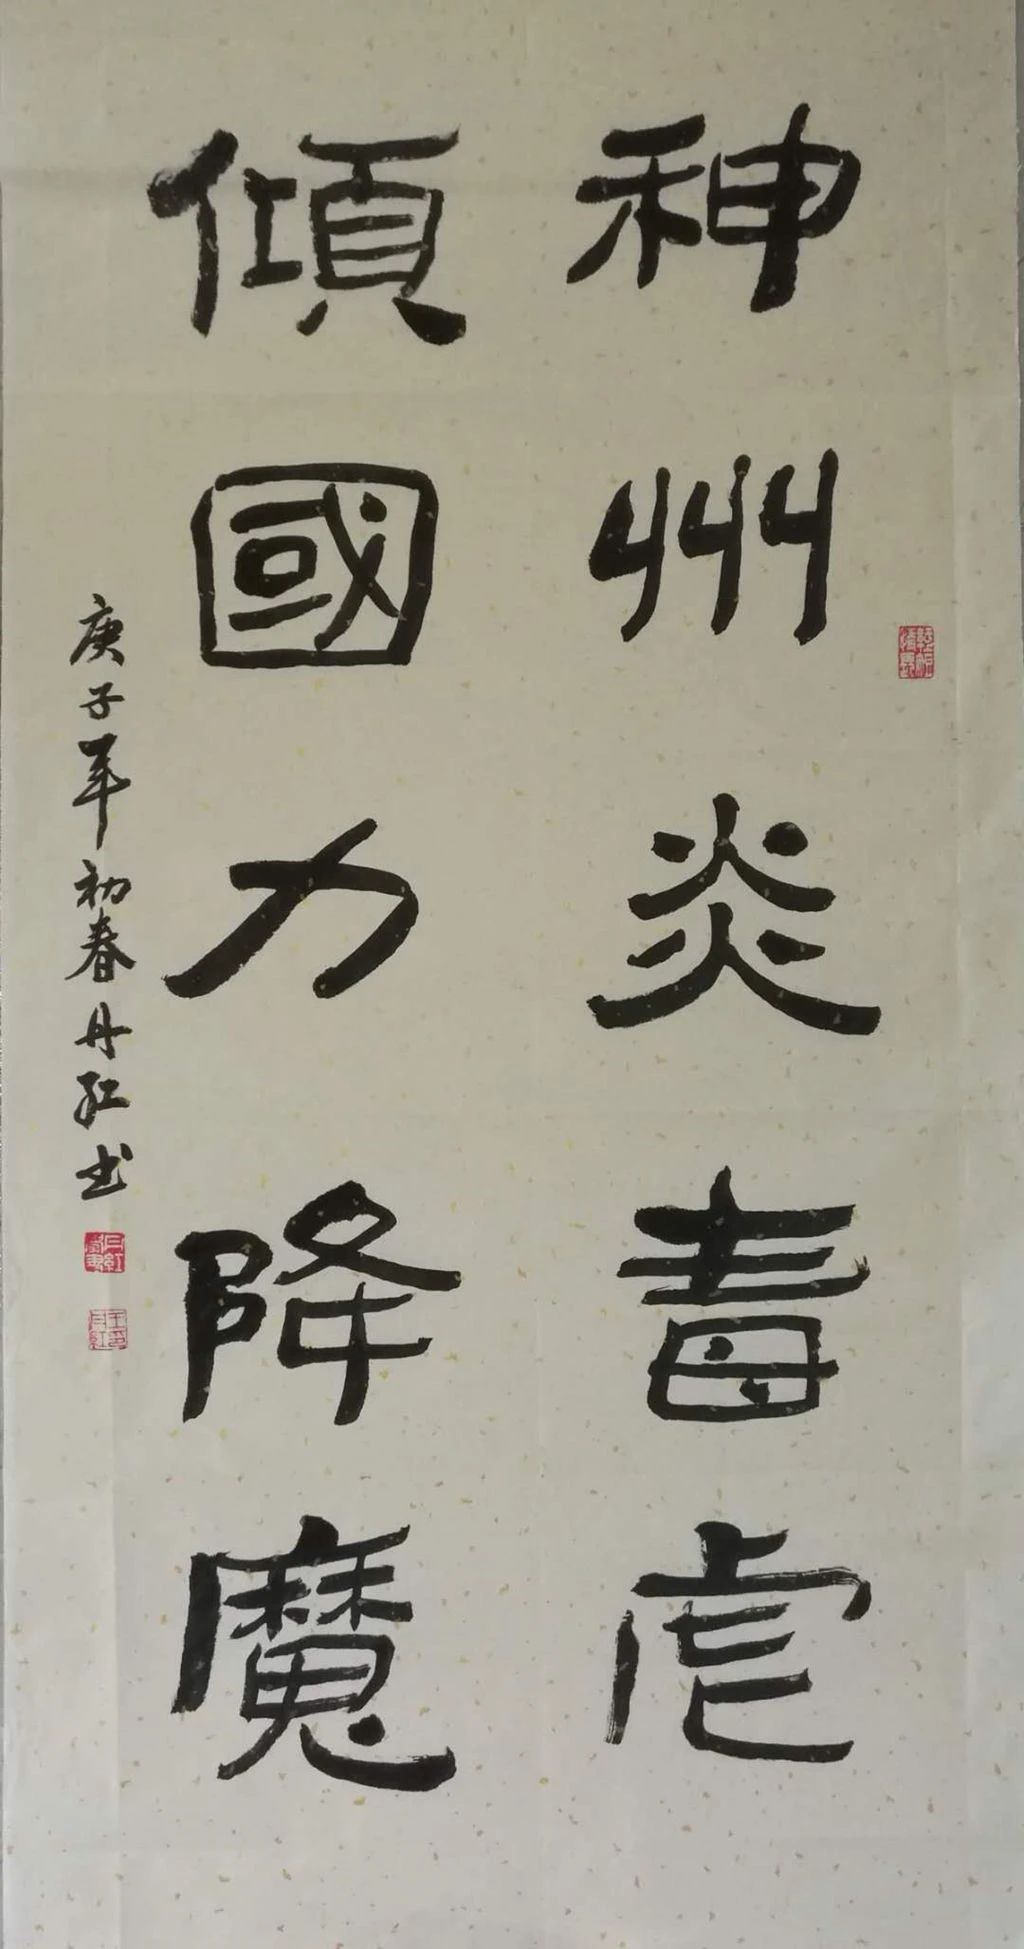 神州炎毒虐
傾國力降魔
庚子年初春丹紅书